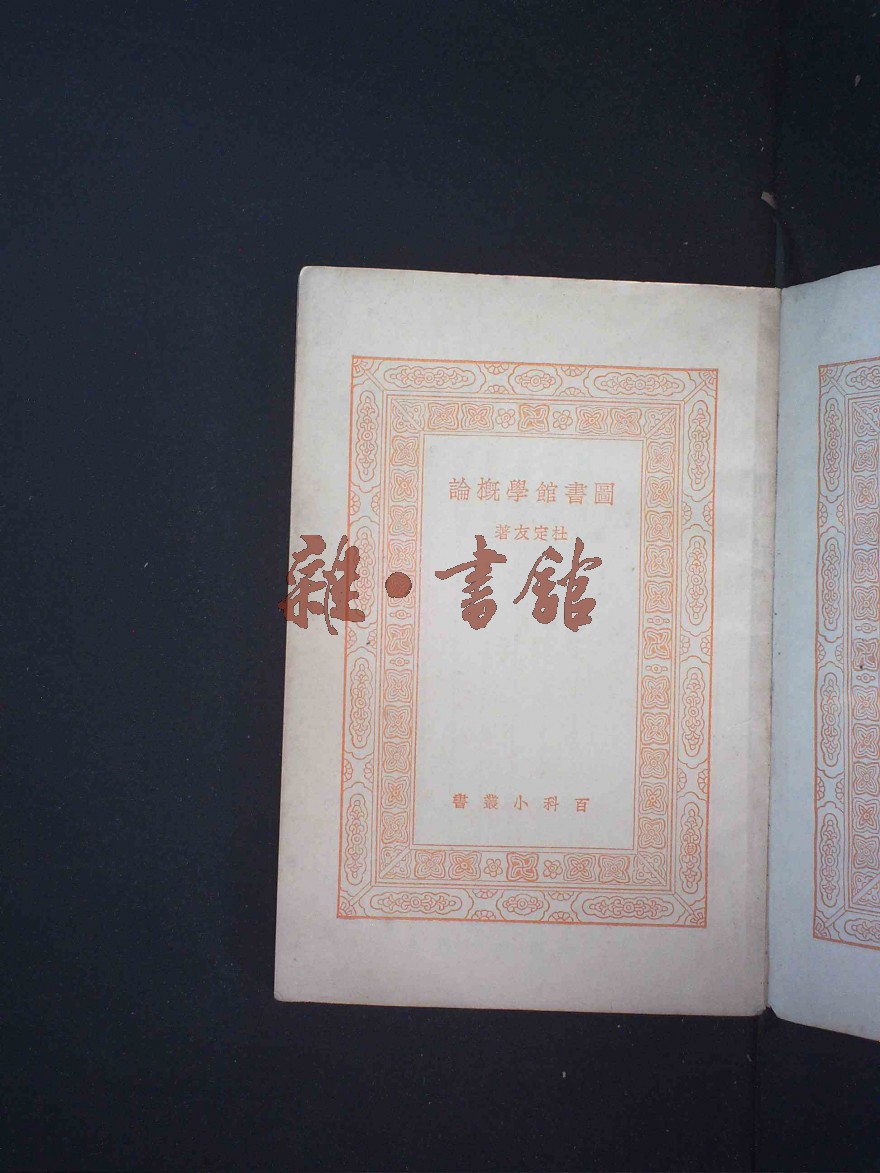 圖書館學概論
杜定友著
雜·書館
百科小叢書